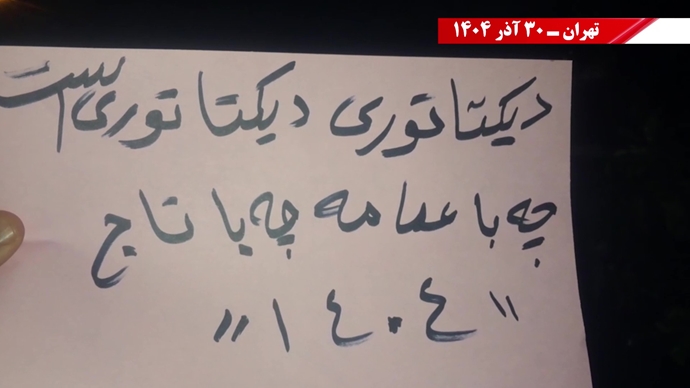 تهران ـ ۳۰ آذر ۱۴۰۴
دیکتاتوری دیکتاتوری است
چه با عمامه چه با تاج
"۱۴۰۴"